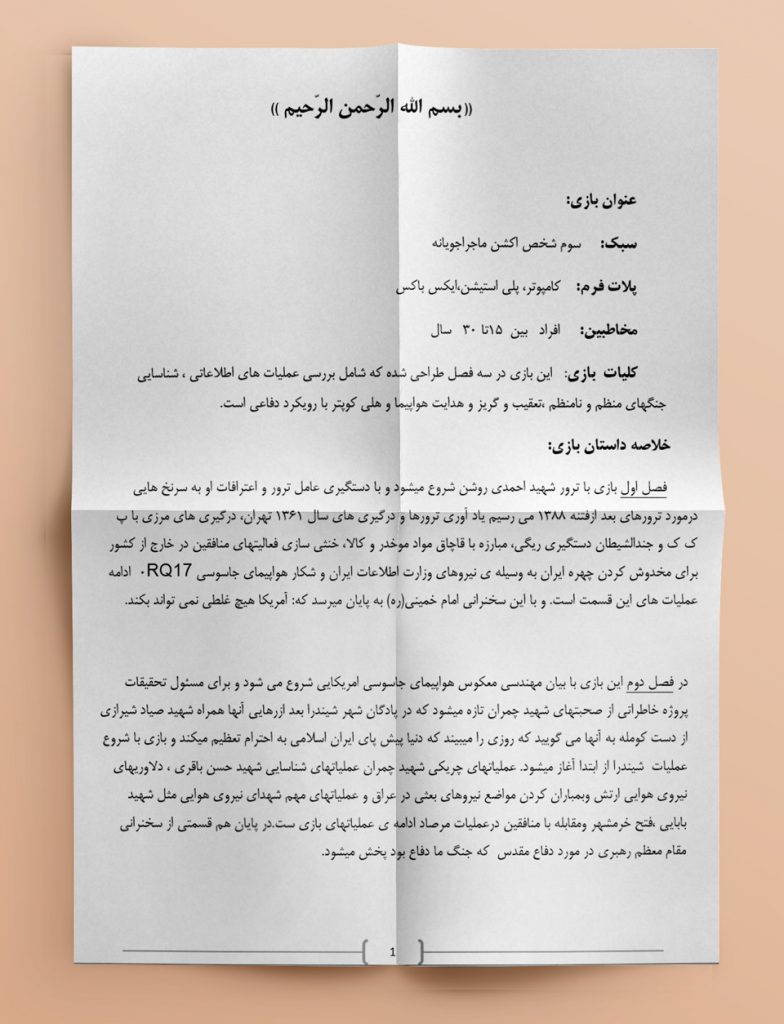 ((بسم الله الرّحمن الرّحیم ))
عنوان بازی:
سبک: سوم شخص اکشن ماجراجویانه
پلات فرم: کامپوتر، پلی استیشن،ایکس باکس
مخاطبین: افراد بین ۱۵تا ۳۰ سال
کلیات بازی: این بازی در سه فصل طراحی شده که شامل بررسی عملیات های اطلاعاتی ، شناسایی
جنگهای منظم و نامنظم ،تعقیب و گریز و هدایت هواپیما و هلی کوپتر با رویکرد دفاعی است.
خلاصه داستان بازی:
فصل اول بازی با ترور شهید احمدی روشن شروع میشود و با دستگیری عامل ترور و اعترافات او به سرنخ هایی
درمورد ترورهای بعد ازفتنه ۱۳۸۸ می رسیم یاد آوری ترورها و درگیری های سال ۱۳۶۱ تهران، درگیری های مرزی با پ
ک ک و جندالشیطان دستگیری ریگی، مبارزه با قاچاق مواد موخدر و کالا، خنثی سازی فعالیتهای منافقین در خارج از کشور
برای مخدوش کردن چهره ایران به وسیله ی نیروهای وزارت اطلاعات ایران و شکار هواپیمای جاسوسی RQ17۰ ادامه
عملیات های این قسمت است. و با این سخنرانی امام خمینی(ره) به پایان میرسد که: آمریکا هیچ غلطی نمی تواند بکند.
در فصل دوم این بازی با بیان مهندسی معکوس هواپیمای جاسوسی امریکایی شروع می شود و برای مسئول تحقیقات
پروژه خاطراتی از صحبتهای شهید چمران تازه میشود که در پادگان شهر شیندرا بعد ازرهایی آنها همراه شهید صیاد شیرازی
از دست کومله به آنها می گویید که روزی را میبیند که دنیا پیش پای ایران اسلامی به احترام تعظیم میکند و بازی با شروع
عملیات شیندرا از ابتدا آغاز میشود. عملیاتهای چریکی شهید چمران عملیاتهای شناسایی شهید حسن باقری ، دلاوریهای
نیروی هوایی ارتش وبمباران کردن مواضع نیروهای بعثی در عراق و عملیاتهای مهم شهدای نیروی هوایی مثل شهید
بابایی ،فتح خرمشهر ومقابله با منافقین درعملیات مرصاد ادامه ی عملیاتهای بازی ست.در پایان هم قسمتی از سخنرانی
مقام معظم رهبری در مورد دفاع مقدس که جنگ ما دفاع بود پخش میشود.
1